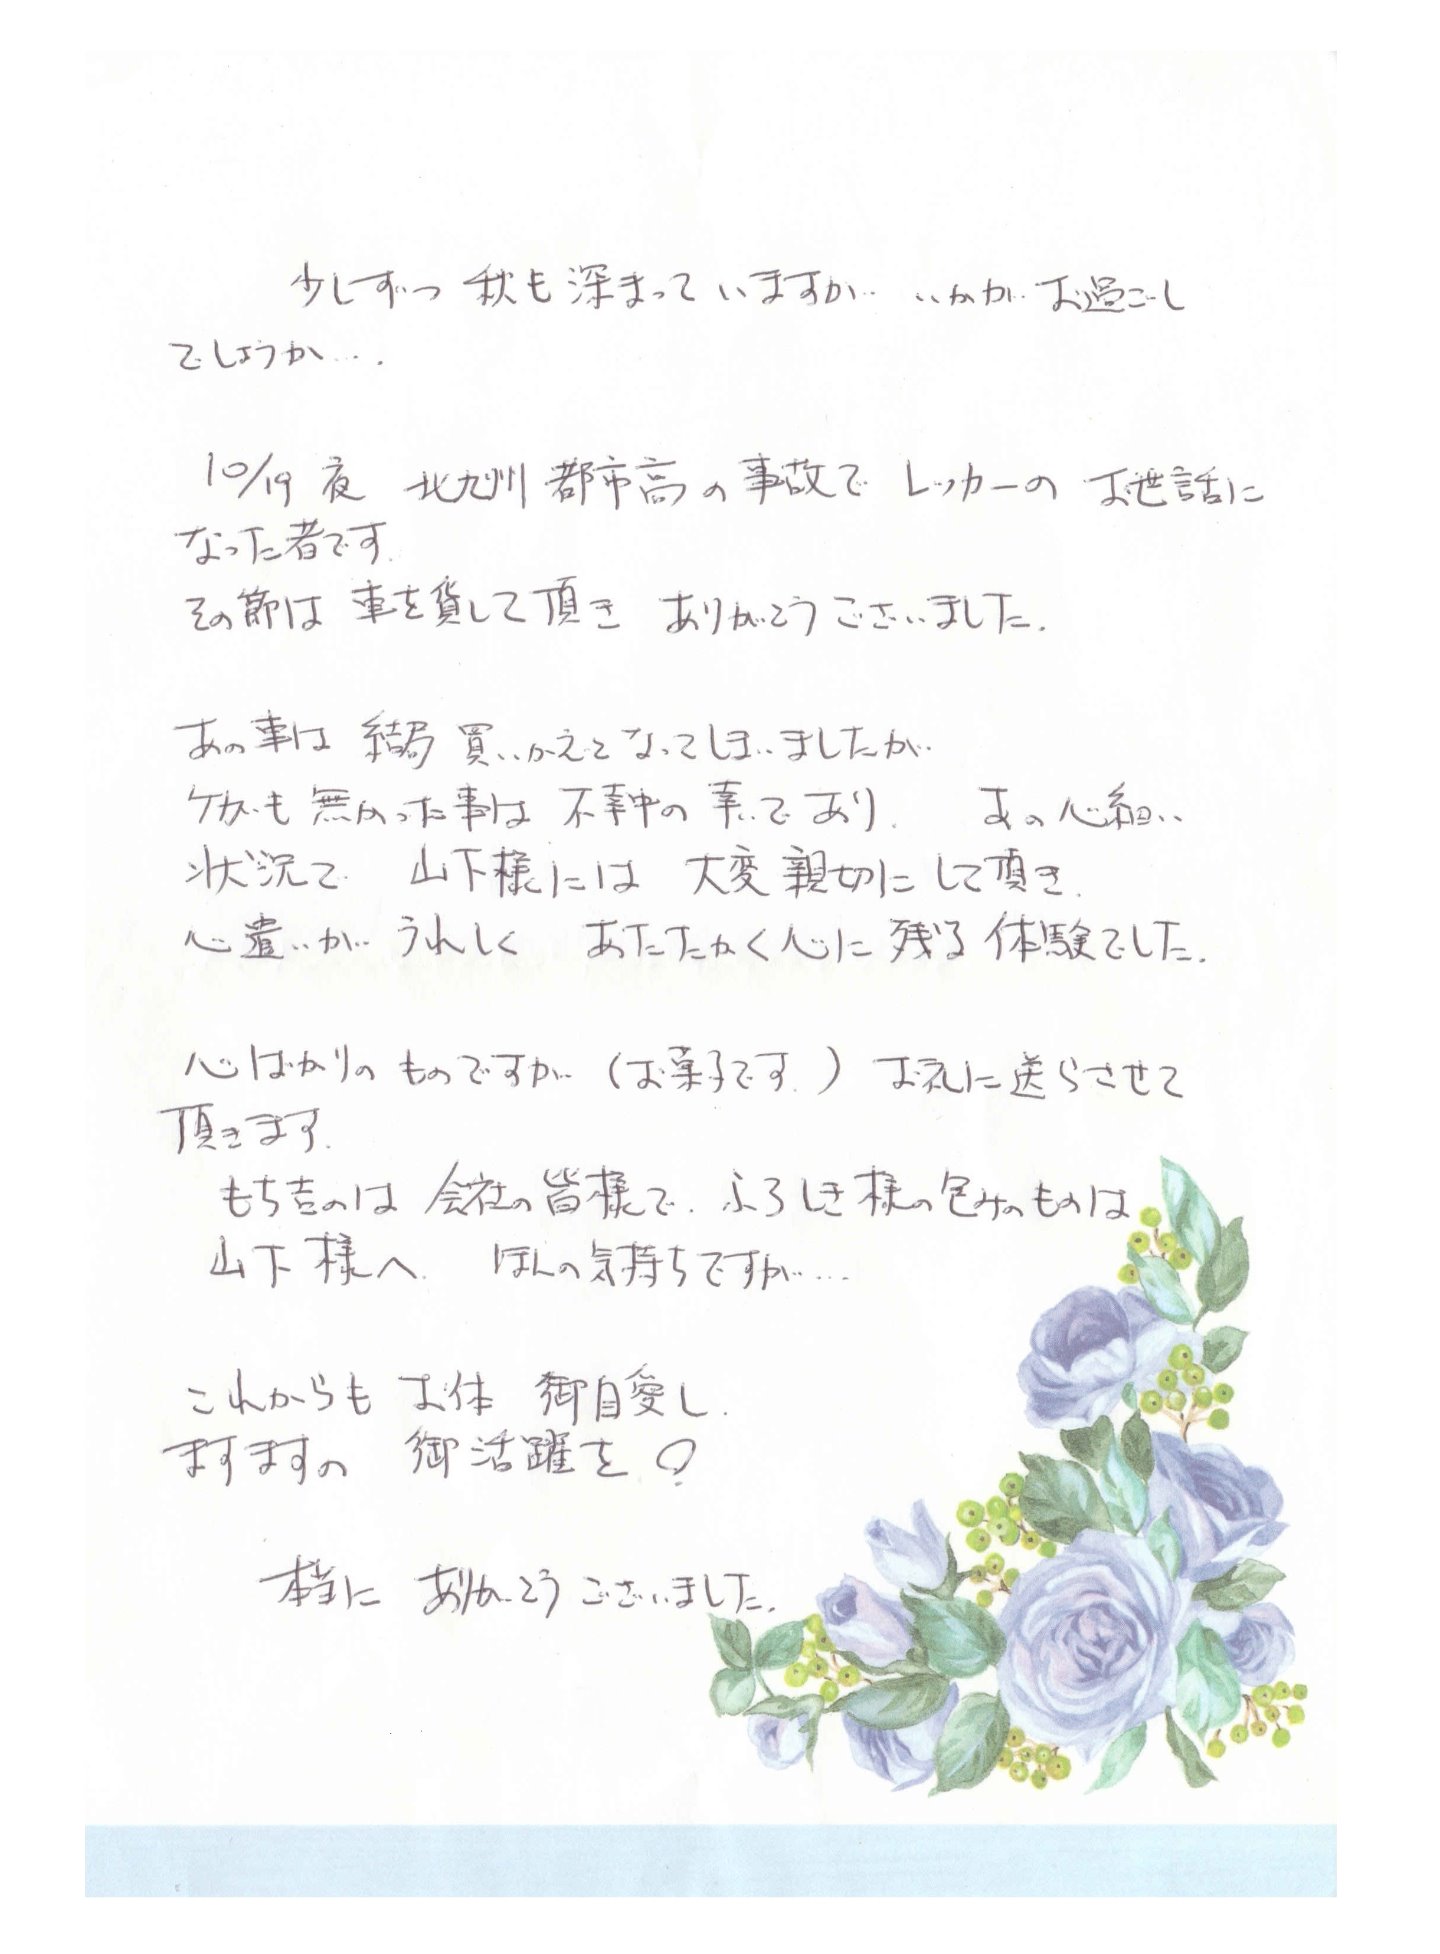 少しずつ 秋も深まっていますが いかがお過ごし
でしょうか….
10/19 夜 北九州都市高の事故で レッカーの お世話に
なった者です.
その節は 車を貸して頂き ありがとうございました.
あの車は 結局 買いかえとなってしまいましたが
ケガも無かった事は 不幸中の幸いであり. あの心細い
状況で 山下様には 大変親切にして頂き.
心遣いが うれしく あたたかく心に残る体験でした.
心ばかりの ものですが (お菓子です.) お礼に送らさせて
頂きます.
もち吉のは 会社の皆様で. ふろしき様の包みのものは
山下様へ. ほんの気持ちですが….
これからも お体 御自愛し.
ますますの 御活躍を
本当に ありがとうございました.